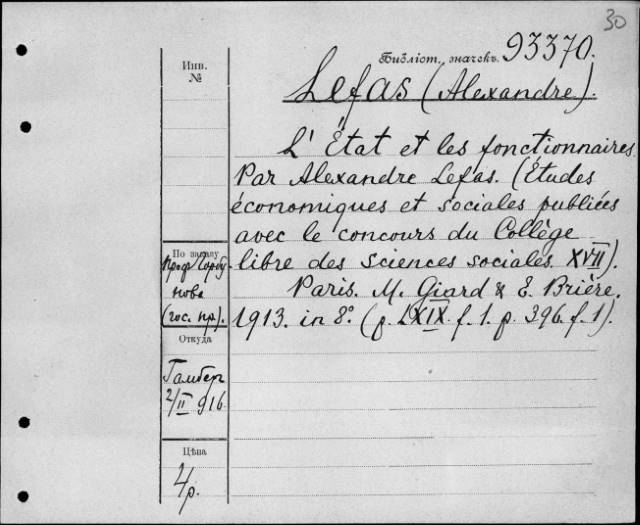 30
Библіот. значекъ 93370.
Инв.
№
Lefas (Alexandre).
L'État et les fonctionnaires
Par Alexandre Lefas. (Études
économiques et sociales publiées
avec le concours du Collège
libre des sciences sociales. XVII).
Paris. M. Giard & E. Brière.
1913. in 8º. (p. LXIX. f. 1. p. 396. f. 1).
По заказу
Проф. Горбу
нова
(гос. пр.).
Откуда
Гамбер
2/II 916
Цѣна
4р.